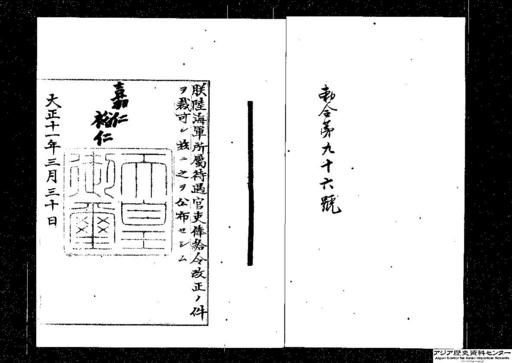 勅令第九十六號
朕陸海軍所屬待遇官吏俸給令改正ノ件
ヲ裁可シ玆ニ之ヲ公布セシム
嘉仁
裕仁
天皇
御璽
大正十一年三月三十日
アジア歴史資料センター
Japan Center for Asian Historical Records